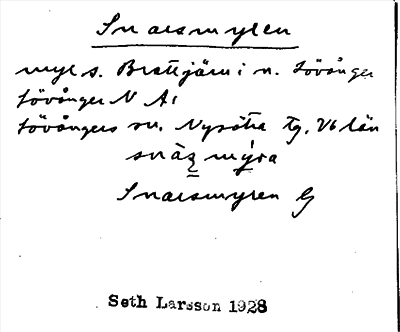 Snaesmyren
myr s. Brattjärn i n. Lövånger
Lövånger N A1
Lövångers sn. Nysätra tg. Vb län
snäz mýra
Snaesmyren G
Seth Larsson 1928